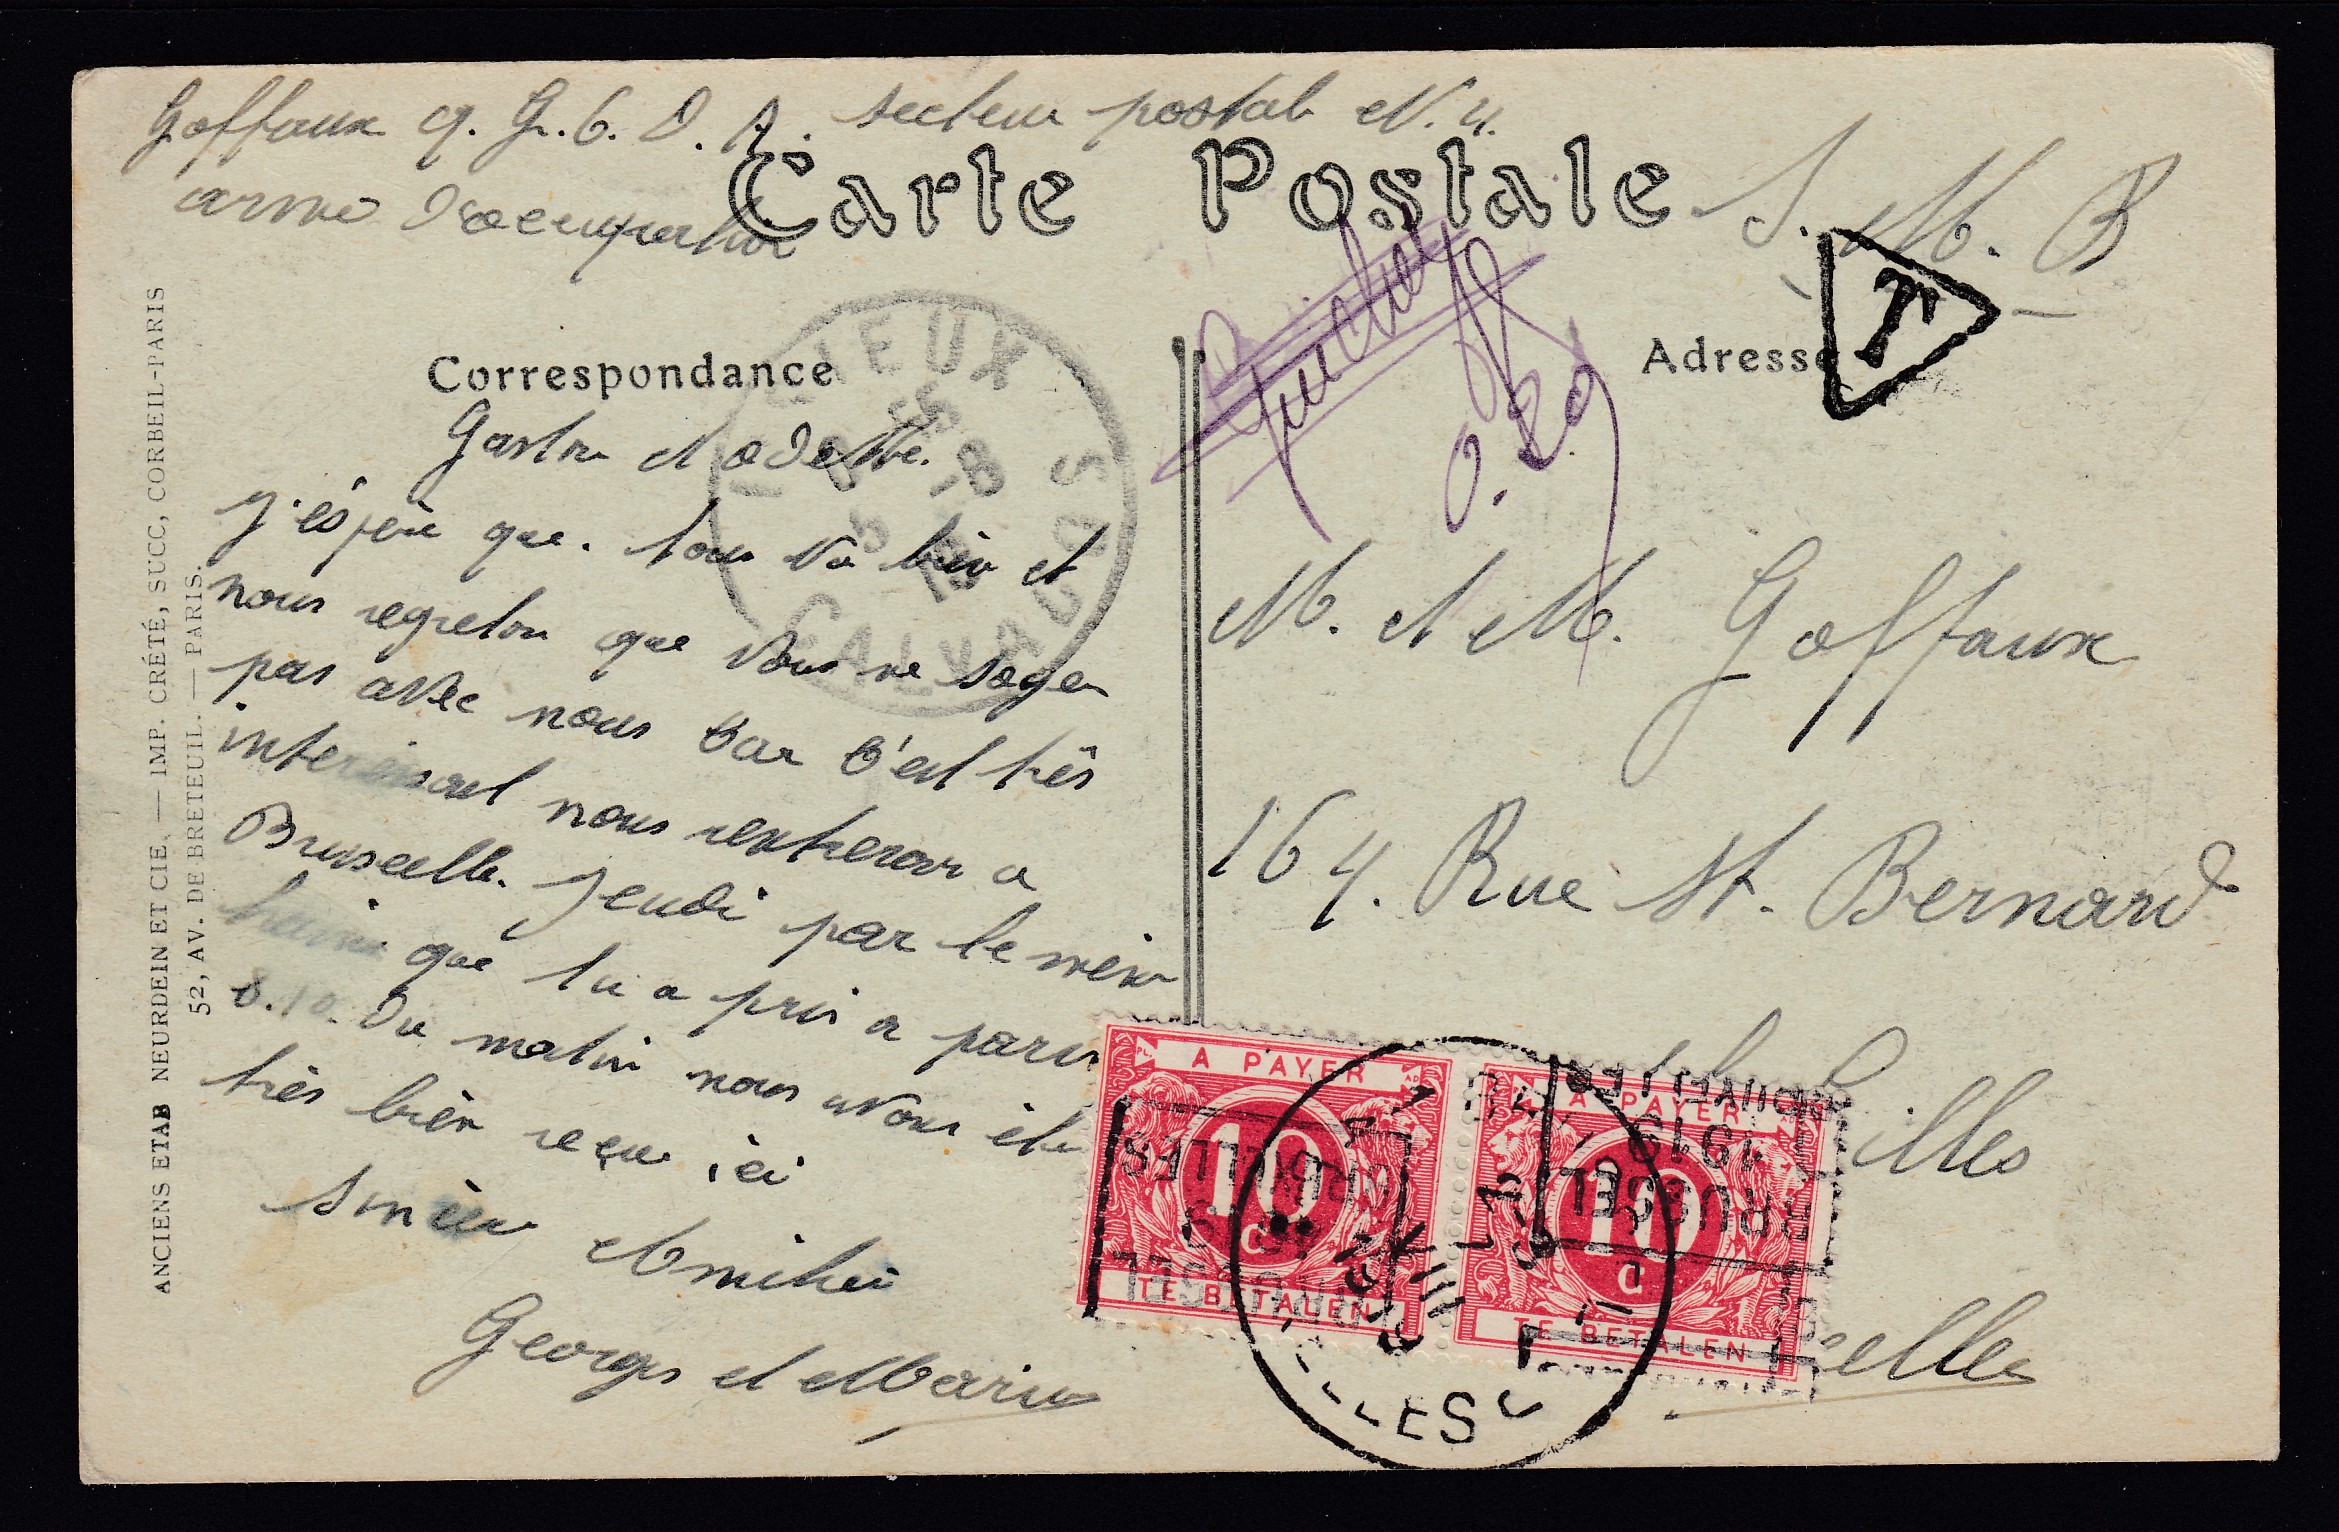 Goffaux 9. G. C. D. A. secteur postal N. 4.
arme d'occupation
S. M. B
Carte Postale
T
Correspondance
Adresse
LISIEUX
CALVADOS
0.20
Gaston et Odette.
J'éspère que. tous va bien et
nous regreton que vous ne soyen
pas avec nous Car C'est très
interessant nous rentreron a
Bruxelle. Jeudi par le mème
que tu a pris a paris
8.10. du matin nous avons été
très bien reçu ici
Amitier
Georges et Marius
M. et M. Goffaux
164. Rue St. Bernard
Gilles
elles
A PAYER
10
C
TE BETALEN
A PAYER
10
C
TE BETALEN
BRUSSEL
1919
BRUXELLES
ANCIENS ETAB NEURDEIN ET CIE. — IMP. CRÉTÉ, SUCC, CORBEIL-PARIS
52, AV. DE BRETEUIL. — PARIS.